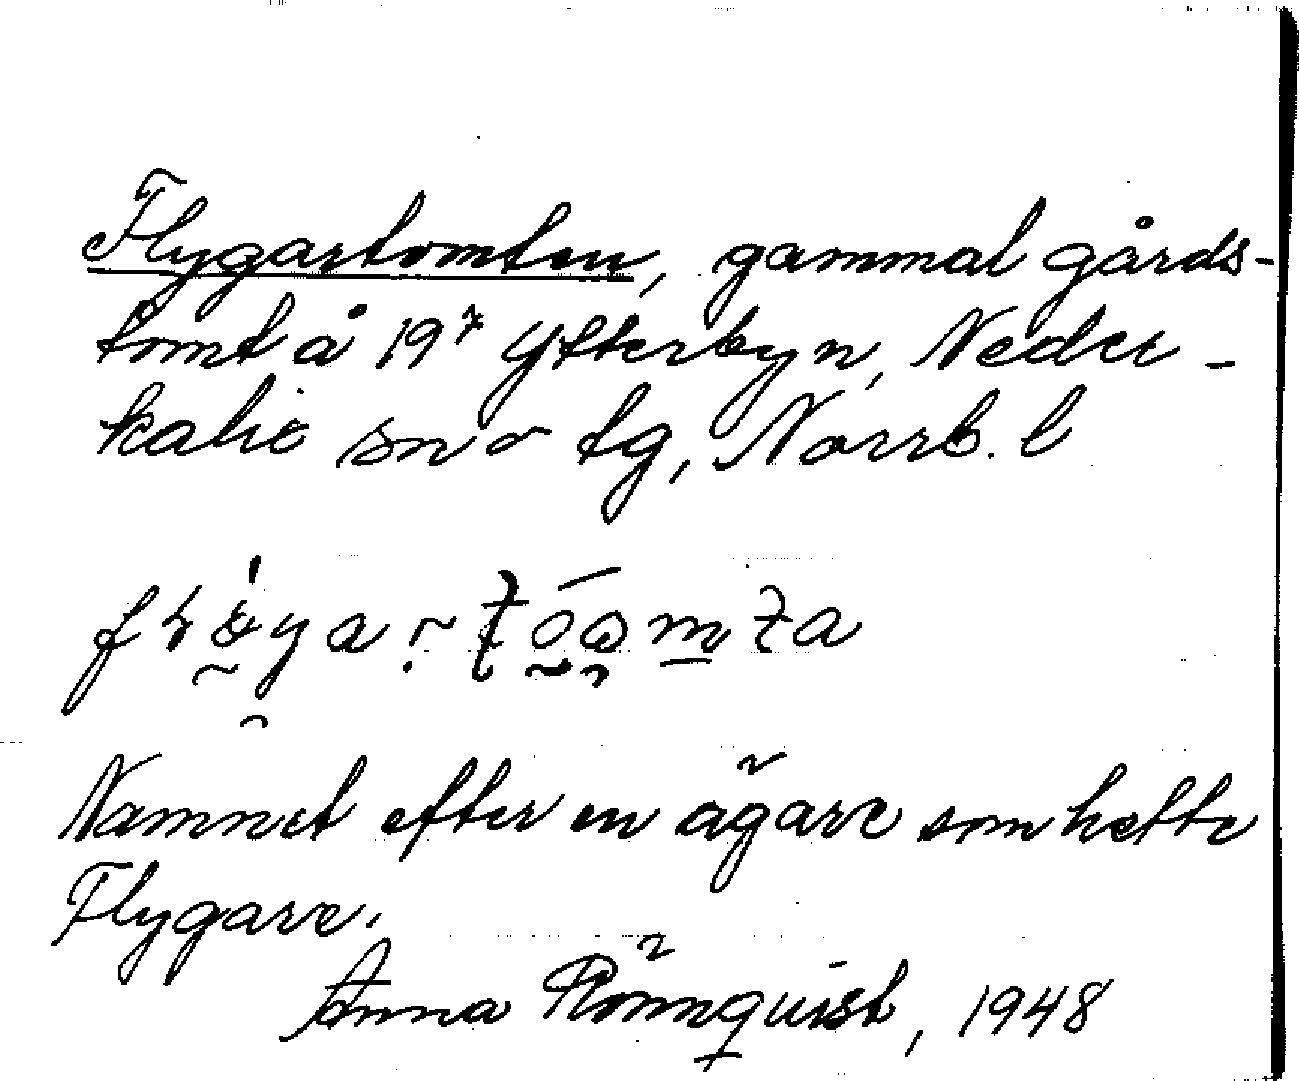 Flygartomten, gammal gårds-
tomt å 19⁷ Ytterbyn, Neder-
kalix sn o tg, Norrb. l
Namnet efter en ägare som hette
Flygare.
Anna Rönnquist, 1948